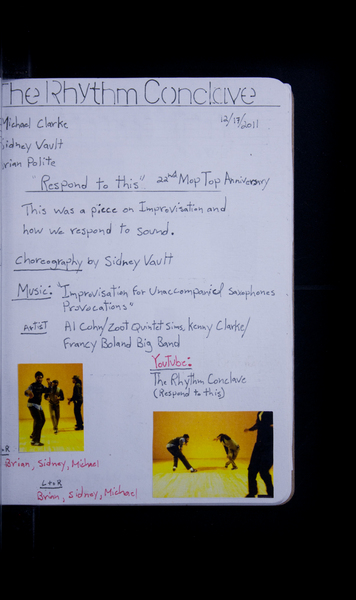 The Rhythm Conclave
Michael Clarke
12/17/2011
Sidney Vault
Brian Polite
"Respond to this" 22nd Mop Top Anniversary
This was a piece on Improvisation and
how we respond to sound.
Choreography by Sidney Vault
Music: "Improvisation for Unaccompanied Saxophones
Provocations"
Artist Al Cohn/Zoot Quintet Sims, Kenny Clarke/
Francy Boland Big Band
YouTube:
The Rhythm Conclave
(Respond to this)
Brian, Sidney, Michael
L to R
Brian, Sidney, Michael